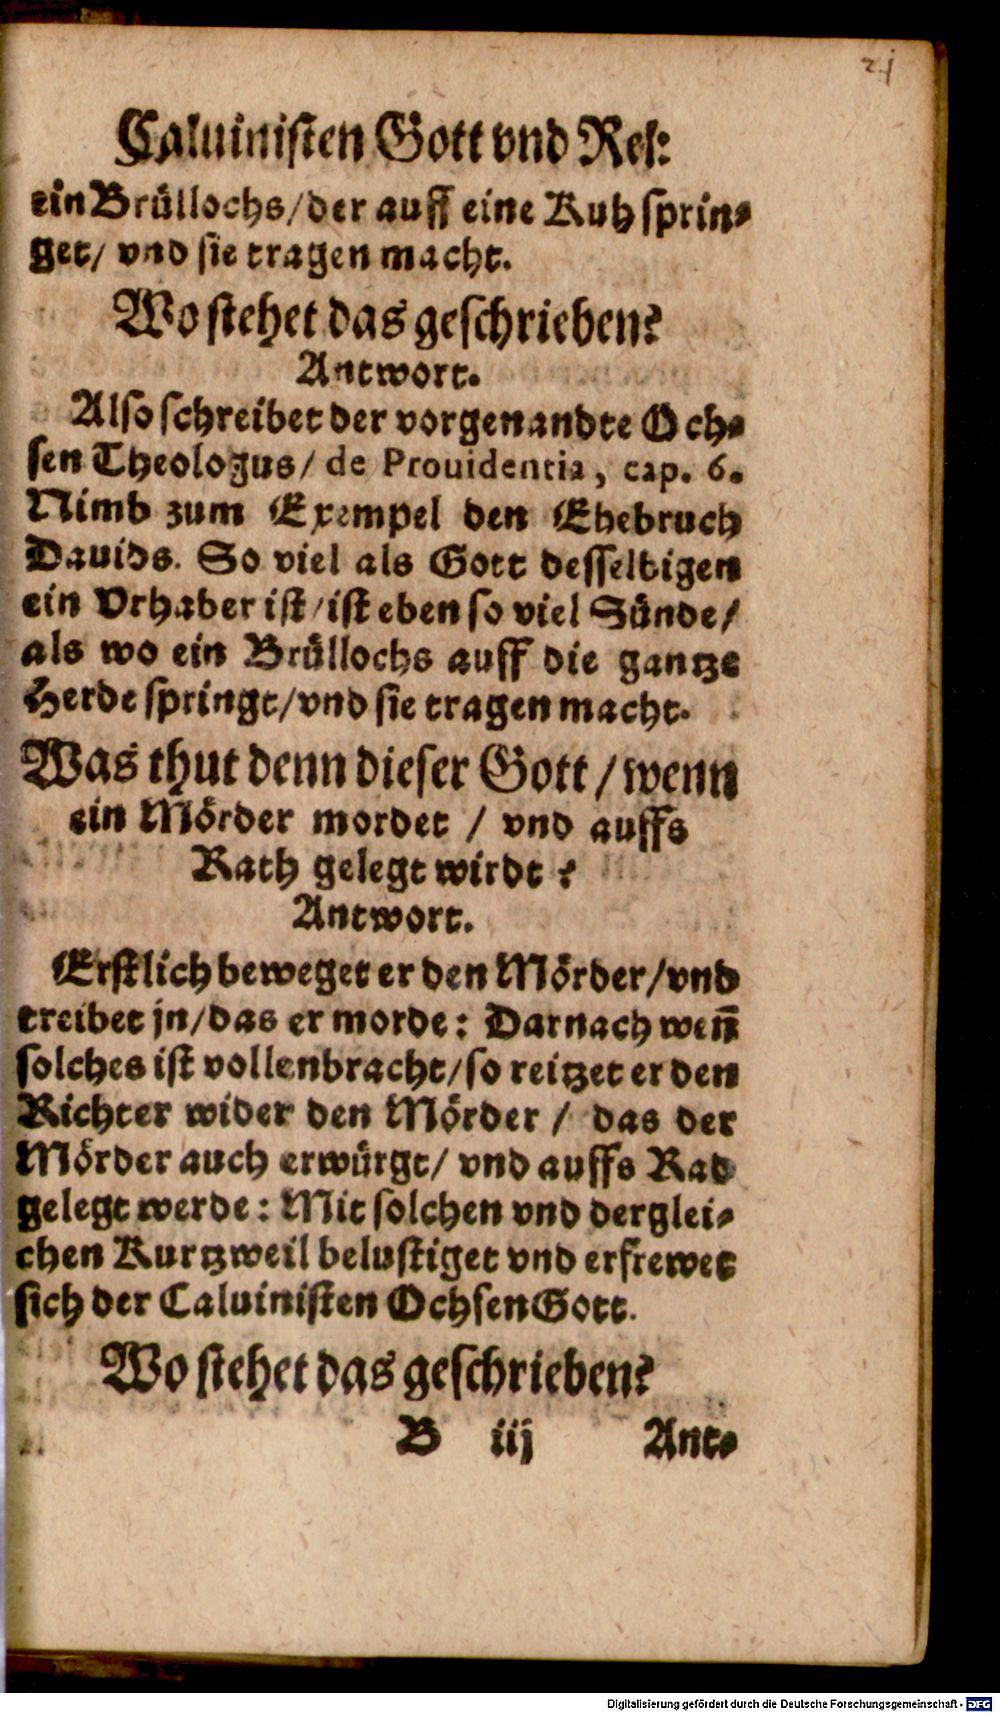 21
Caluinisten Gott vnd Rel:
ein Brüllochs/der auff eine Kuh sprin⸗
get/ vnd sie tragen macht.
Wo stehet das geschrieben?
Antwort.
Also schreibet der vorgenandte Och⸗
sen Theologus/ de Prouidentia, cap. 6.
Nimb zum Exempel den Ehebruch
Dauids. So viel als Gott desselbigen
ein Vrhaber ist/ist eben so viel Sünde/
als wo ein Brüllochs auff die gantze
Herde springt/vnd sie tragen macht.
Was thut denn dieser Gott/wenn
ein Mörder mordet / vnd auffs
Rath gelegt wirdt?
Antwort.
Erstlich beweget er den Mörder/vnd
treibet jn/das er morde: Darnach weñ
solches ist vollenbracht/so reitzet er den
Richter wider den Mörder / das der
Mörder auch erwürgt/ vnd auffs Rad
gelegt werde: Mit solchen vnd derglei⸗
chen Kurtzweil belustiget vnd erfrewet
sich der Caluinisten OchsenGott.
Wo stehet das geschrieben?
B iij Ant⸗
Digitalisierung gefördert durch die Deutsche Forschungsgemeinschaft - DFG